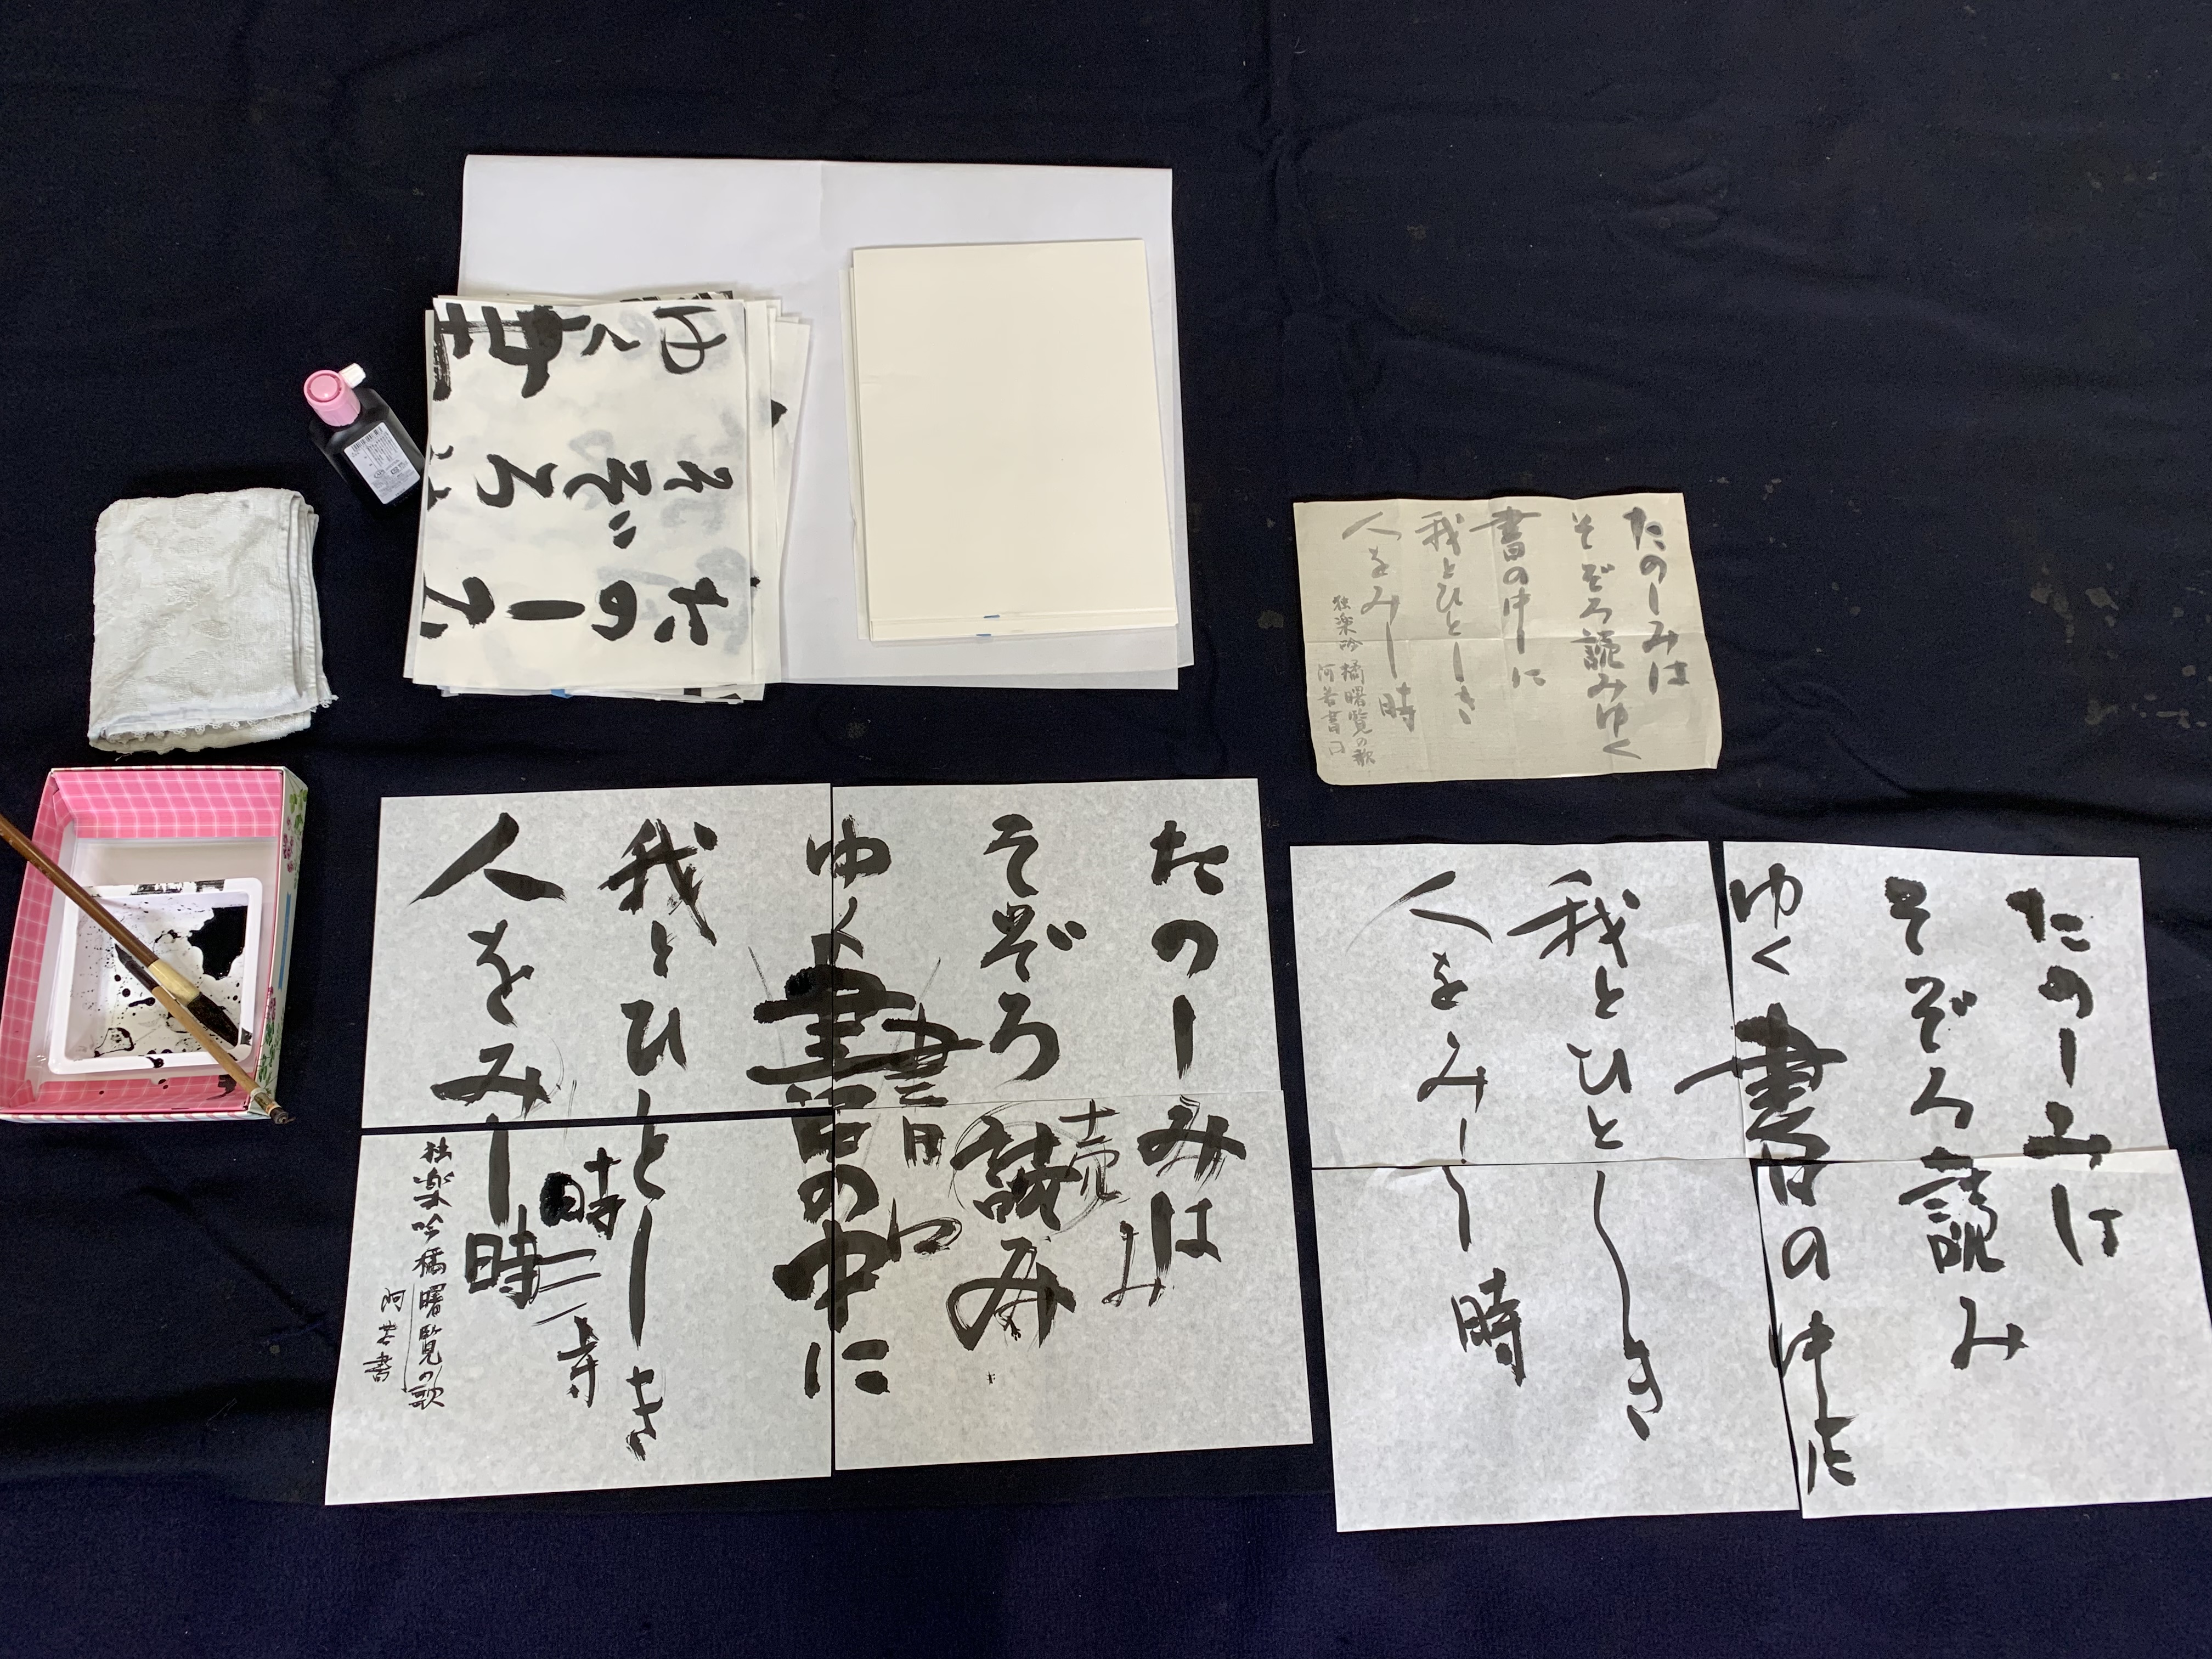 たのしみは
そぞろ読みゆく
書の中に
我とひとしき
人をみし時
独楽吟 橘曙覧の歌
阿若書
たのしみは
そぞろ読み
ゆく書の中に
我とひとしき
人をみし時
独楽吟 橘曙覧の歌
阿若書
書
読
み
時
寺
たのしみは
そぞろ読み
ゆく書の中に
我とひとしき
人をみし時
たのし
そぞろ
ゆく書